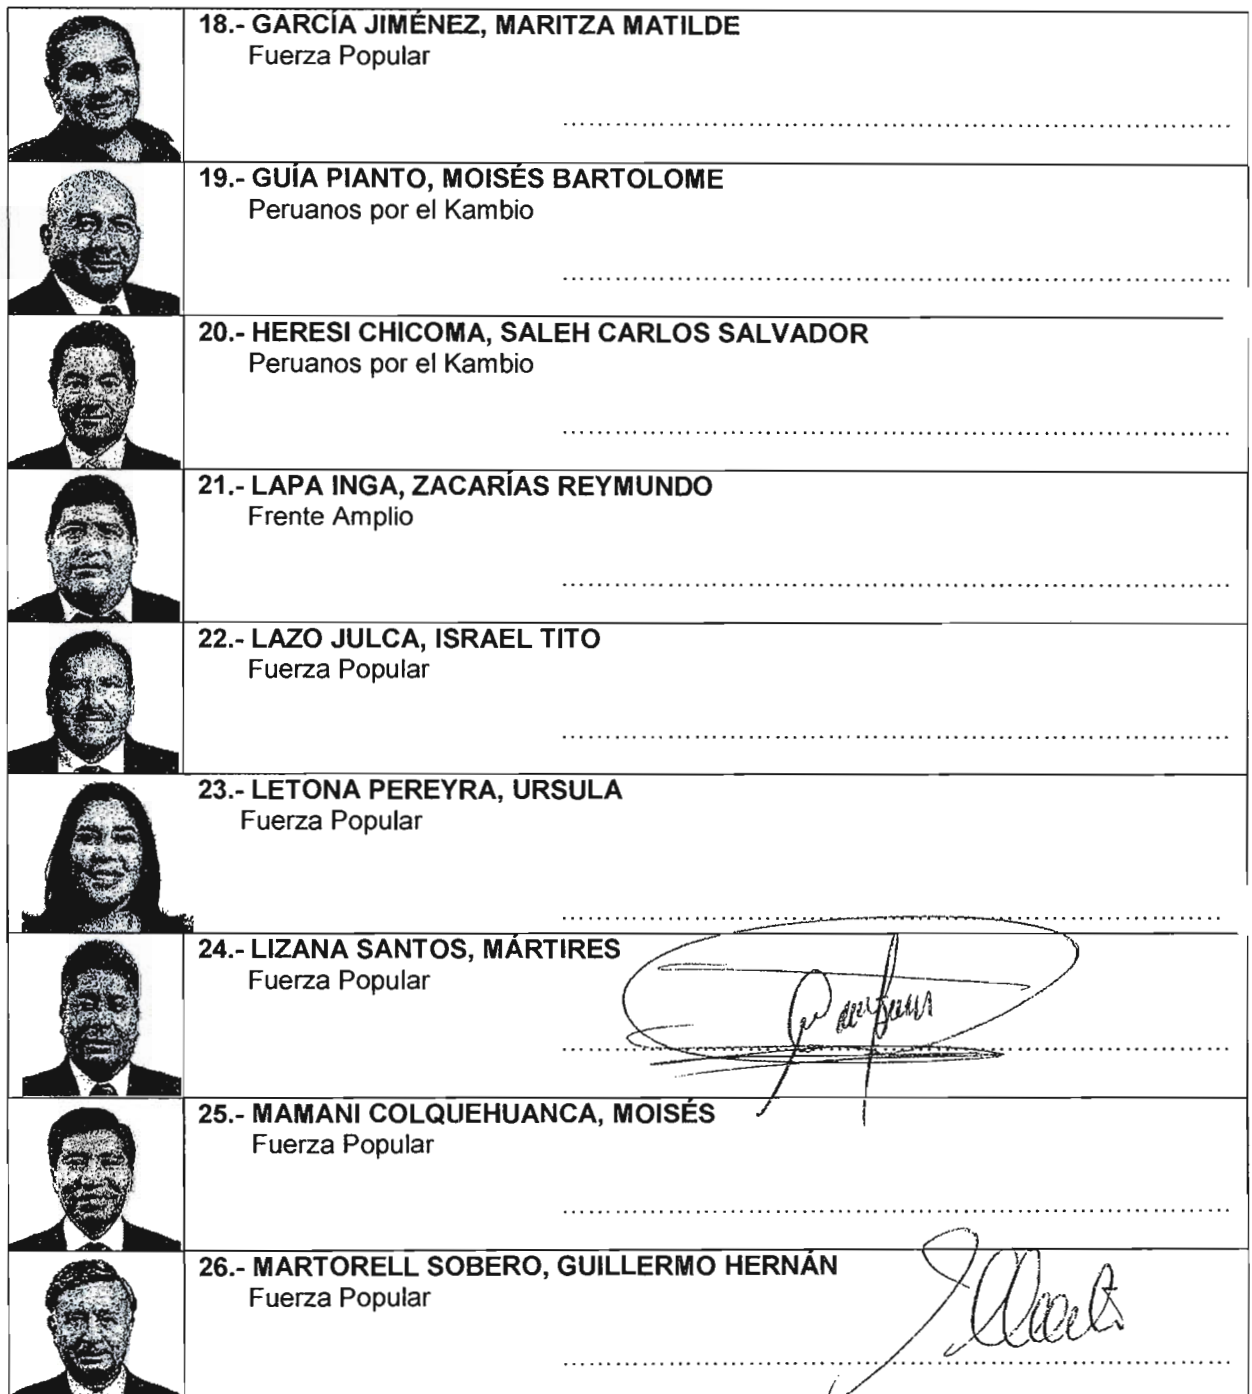 18.- GARCÍA JIMÉNEZ, MARITZA MATILDE
Fuerza Popular
19.- GUÍA PIANTO, MOISÉS BARTOLOME
Peruanos por el Kambio
20.- HERESI CHICOMA, SALEH CARLOS SALVADOR
Peruanos por el Kambio
21.- LAPA INGA, ZACARÍAS REYMUNDO
Frente Amplio
22.- LAZO JULCA, ISRAEL TITO
Fuerza Popular
23.- LETONA PEREYRA, URSULA
Fuerza Popular
24.- LIZANA SANTOS, MÁRTIRES
Fuerza Popular
25.- MAMANI COLQUEHUANCA, MOISÉS
Fuerza Popular
26.- MARTORELL SOBERO, GUILLERMO HERNÁN
Fuerza Popular